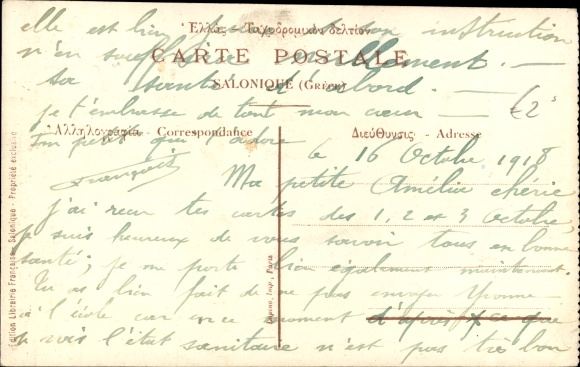 elle est bien son instruction
Ελλας - Ταχυδρομικόν δελτίον
n'en souffrira nullement. —
CARTE POSTALE
sa santé d'abord. —
SALONIQUE (GRÈCE)
je t'embrasse de tout mon cœur — €2
Αλληλογραφία - Correspondance
Διεύθυνσις - Adresse
Ton petit qui t'adore
François
le 16 Octobre 1918
Ma petite Amélie chérie
j'ai reçu tes cartes des 1, 2 et 3 Octobre,
je suis heureux de vous savoir tous en bonne
santé; je me porte bien également maintenant.
Tu as bien fait de ne pas envoyer Yvonne
à l'école car en ce moment d'après ce que
je vois l'état sanitaire n'est pas très bon
Edition Librairie Française - Salonique - Propriété exclusive
Imp., Paris